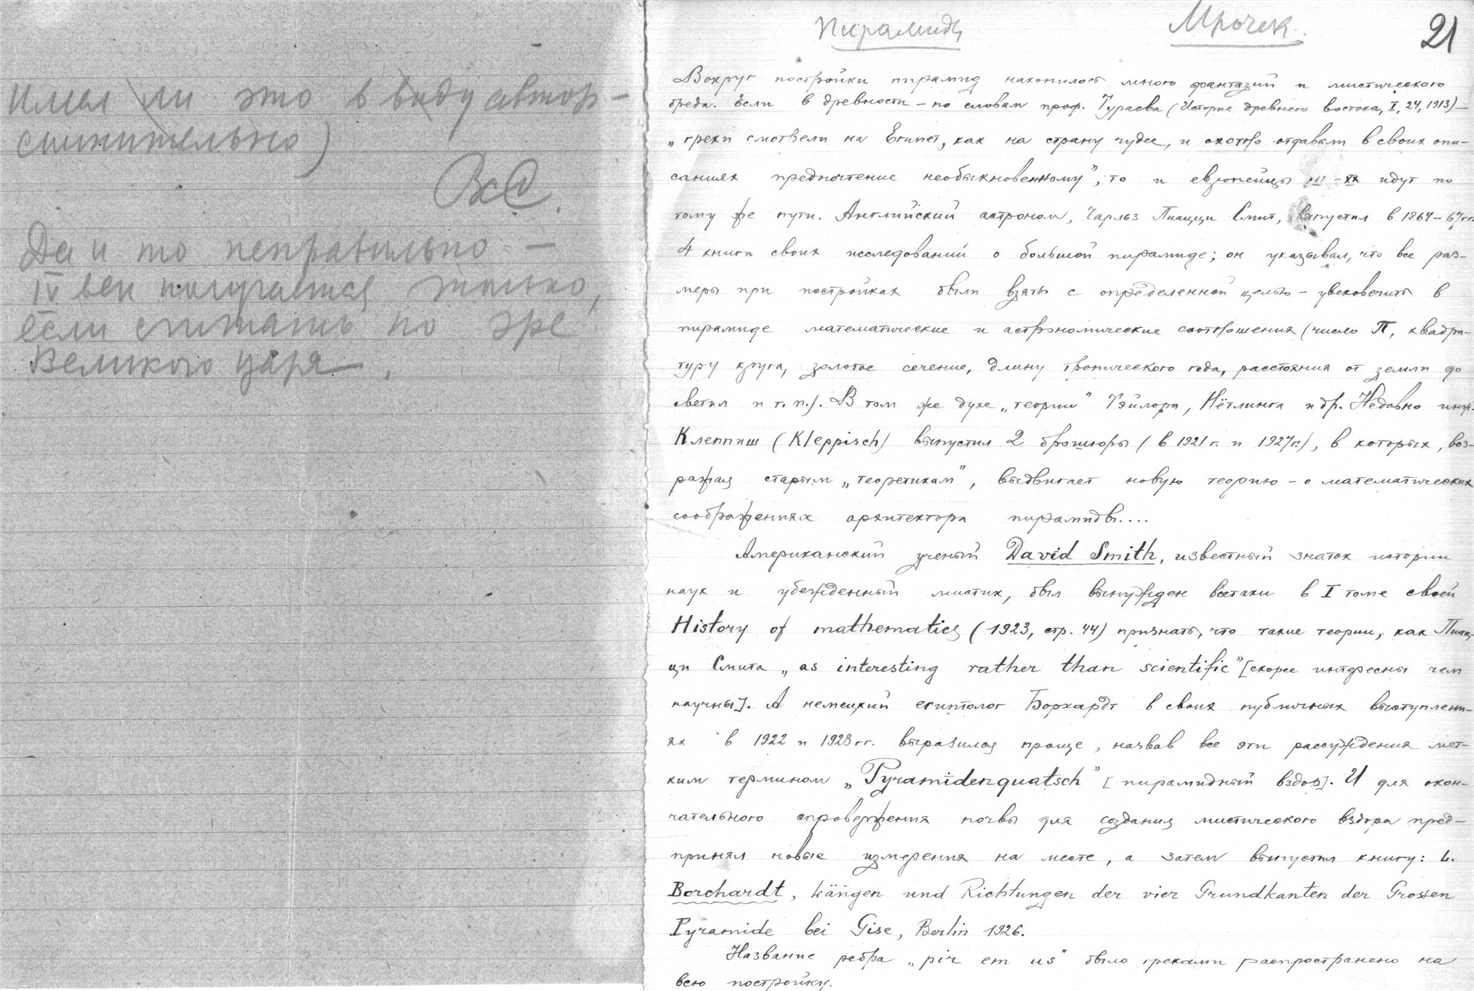 Имел ли это в виду автор –
сомнительно)
ВсС.
Да и то неправильно –
IV век получается только,
если считать по эре
Великого царя.
Пирамиды Мрочек. 21
Вокруг постройки пирамид накопилось много фантазий и мистического
бреда. Если в древности – по словам проф. Тураева (История древнего востока, I, 24, 1913) –
„греки смотрели на Египет, как на страну чудес, и охотно отдавали в своих опи-
саниях предпочтение необыкновенному", то и европейцы – XX идут по
тому же пути. Английский астроном, Чарльз Пиацци Смит, выпустил в 1864–67 гг.
4 книги своих исследований о большой пирамиде; он указывал, что все раз-
меры при постройках были взяты с определенной целью – увековечить в
пирамиде математические и астрономические соотношения (число П, квадра-
туру круга, золотое сечение, длину тропического года, расстояния от земли до
светил и т. п.). В том же духе „теории" Тэйлора, Нётлинга и др. Недавно инж.
Клеппиш (Kleppisch) выпустил 2 брошюры (в 1921 г. и 1927 г.), в которых, воз-
ражая старым „теоретикам", выдвигает новую теорию – о математических
соображениях архитектора пирамиды....
Американский ученый David Smith, известный знаток истории
наук и убежденный мистик, был вынужден всетаки в I томе своей
History of mathematics (1923, стр. 44) признать, что такие теории, как Пиац-
ци Смита „as interesting rather than scientific" [скорее интересны чем
научны]. А немецкий египтолог Борхардт в своих публичных выступлени-
ях в 1922 и 1923 гг. выразился проще, назвав все эти рассуждения мет-
ким термином „Pyramidenquatsch" [пирамидный вздор]. И для окон-
чательного опровержения почвы для создания мистического вздора пред-
принял новые измерения на месте, а затем выпустил книгу: L.
Borchardt, Längen und Richtungen der vier Grundkanten der Grossen
Pyramide bei Gise, Berlin 1926.
Название ребра „pir em us" было греками распространено на
всю постройку.